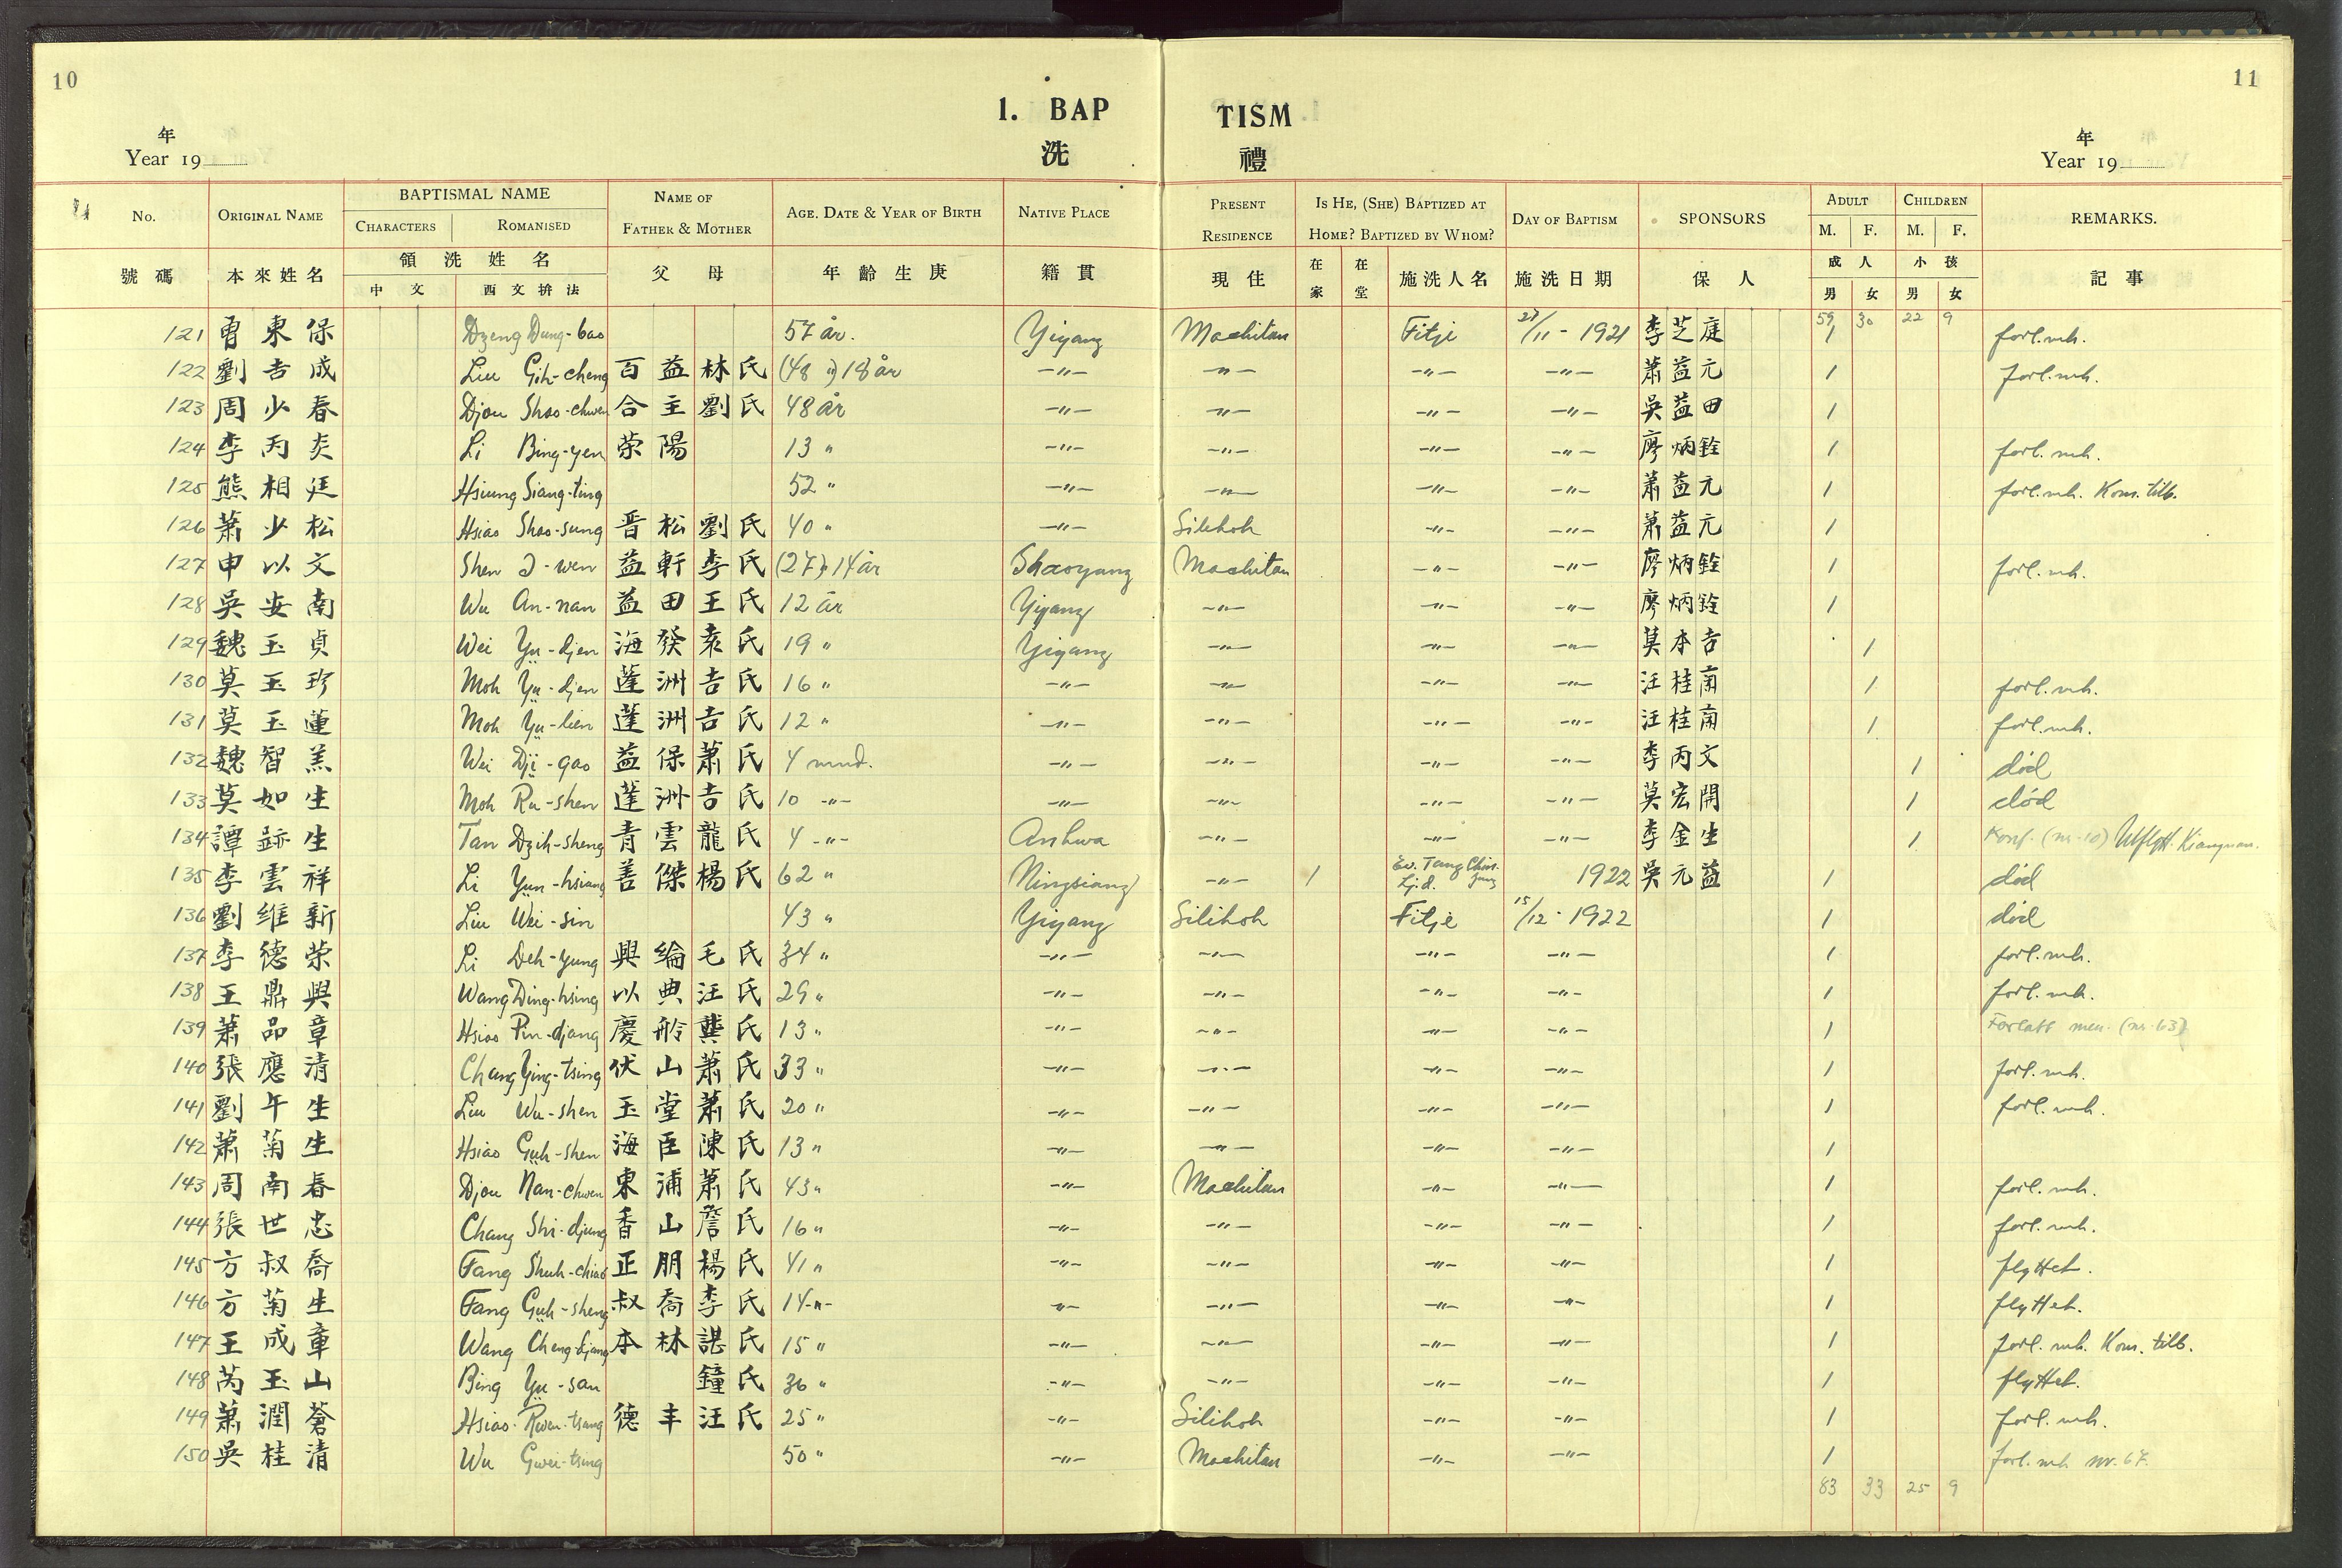 10
11
1. BAP TISM
洗 禮
年
Year 19
年
Year 19
No. ORIGINAL NAME BAPTISMAL NAME NAME OF FATHER & MOTHER AGE. DATE & YEAR OF BIRTH NATIVE PLACE PRESENT RESIDENCE IS HE, (SHE) BAPTIZED AT HOME? BAPTIZED BY WHOM? DAY OF BAPTISM SPONSORS ADULT CHILDREN REMARKS.
CHARACTERS ROMANISED M. F. M. F.
號碼 本來姓名 領洗姓名 父母 年齡生庚 籍貫 現住 在家 在堂 施洗人名 施洗日期 保人 成人 小孩 記事
中文 西文拚法 男 女 男 女
59 30 22 9
121 曾東保 Dzeng Dung-bao 57 år. Yiyang Machitan Fitje 27/11 - 1921 李芝庭 1 forl. mh.
122 劉吉成 Liu Gih-cheng 百益林氏 (48 ") 18 år -"- -"- -"- -"- 蕭益元 1 forl. mh.
123 周少春 Djou Shao-chwen 合主劉氏 48 år -"- -"- -"- -"- 吳益田 1
124 李丙炎 Li Bing-yen 荣陽 13 " -"- -"- -"- -"- 廖炳銓 1 forl. mh.
125 熊相廷 Hsiung Siang-ting 52 " -"- -"- -"- -"- 蕭益元 1 forl. mh. Kom. tilb.
126 蕭少松 Hsiao Shao-sung 晋松劉氏 40 " -"- Silihoh -"- -"- 蕭益元 1
127 申以文 Shen I-wen 益軒李氏 (27) 14 år Shaoyang Machitan -"- -"- 廖炳銓 1 forl. mh.
128 吳安南 Wu An-nan 益田王氏 12 år Yiyang -"- -"- -"- 廖炳銓 1
129 魏玉貞 Wei Yu-djen 海發袁氏 19 " Yiyang -"- -"- -"- 莫本吉 1
130 莫玉珍 Moh Yü-djen 蓬洲吉氏 16 " -"- -"- -"- -"- 汪桂南 1 forl. mh.
131 莫玉蓮 Moh Yü-lien 蓬洲吉氏 12 " -"- -"- -"- -"- 汪桂南 1 forl. mh.
132 魏智羔 Wei Dji-gao 益保蕭氏 4 mnd. -"- -"- -"- -"- 李丙文 1 död
133 莫如生 Moh Ru-shen 蓬洲吉氏 10 -"- -"- -"- -"- -"- 莫宏開 1 död
134 譚跡生 Tan Dzih-sheng 青雲龍氏 4 -"- Anhwa -"- -"- -"- 李金生 1 Konf. (nr. 10) Utflytt.
135 李雲祥 Li Yün-hsiang 善傑楊氏 62 " Ningsiang -"- 1 Ev. Tang 1922 吳元益 1 död
136 劉維新 Liu Wei-sin 43 " Yiyang Silihoh Fitje 15/12 - 1922 1 död
137 李德荣 Li Deh-yung 興綸毛氏 34 " -"- -"- -"- -"- 1 forl. mh.
138 王鼎興 Wang Ding-hsing 以典汪氏 29 " -"- -"- -"- -"- 1 forl. mh.
139 蕭品章 Hsiao Pin-djang 慶舲龔氏 13 " -"- -"- -"- -"- 1 Forlatt men. (nr. 63)
140 張應清 Chang Ying-tsing 伏山蕭氏 33 " -"- -"- -"- -"- 1 forl. mh.
141 劉午生 Liu Wu-shen 玉堂蕭氏 20 " -"- -"- -"- -"- 1 forl. mh.
142 蕭菊生 Hsiao Güh-shen 海臣陳氏 13 " -"- -"- -"- -"- 1
143 周南春 Djou Nan-chwen 東浦蕭氏 43 " -"- Machitan -"- -"- 1 forl. mh.
144 張世忠 Chang Shi-djung 香山詹氏 16 " -"- -"- -"- -"- 1 forl. mh.
145 方叔喬 Fang Shuh-chiao 正朋楊氏 41 " -"- -"- -"- -"- 1 flyttet.
146 方菊生 Fang Güh-sheng 叔喬李氏 14 -"- -"- -"- -"- -"- 1 flyttet.
147 王成章 Wang Cheng-djang 本林諶氏 15 " -"- -"- -"- -"- 1 forl. mh. Kom. tilb.
148 芮玉山 Bing Yü-san 鐘氏 36 " -"- -"- -"- -"- 1 flyttet.
149 蕭潤蒼 Hsiao Rwen-tsang 德丰汪氏 25 " -"- Silihoh -"- -"- 1 forl. mh.
150 吳桂清 Wu Gwei-tsing 50 " -"- Machitan -"- -"- 1 forl. mh nr. 67.
83 33 25 9